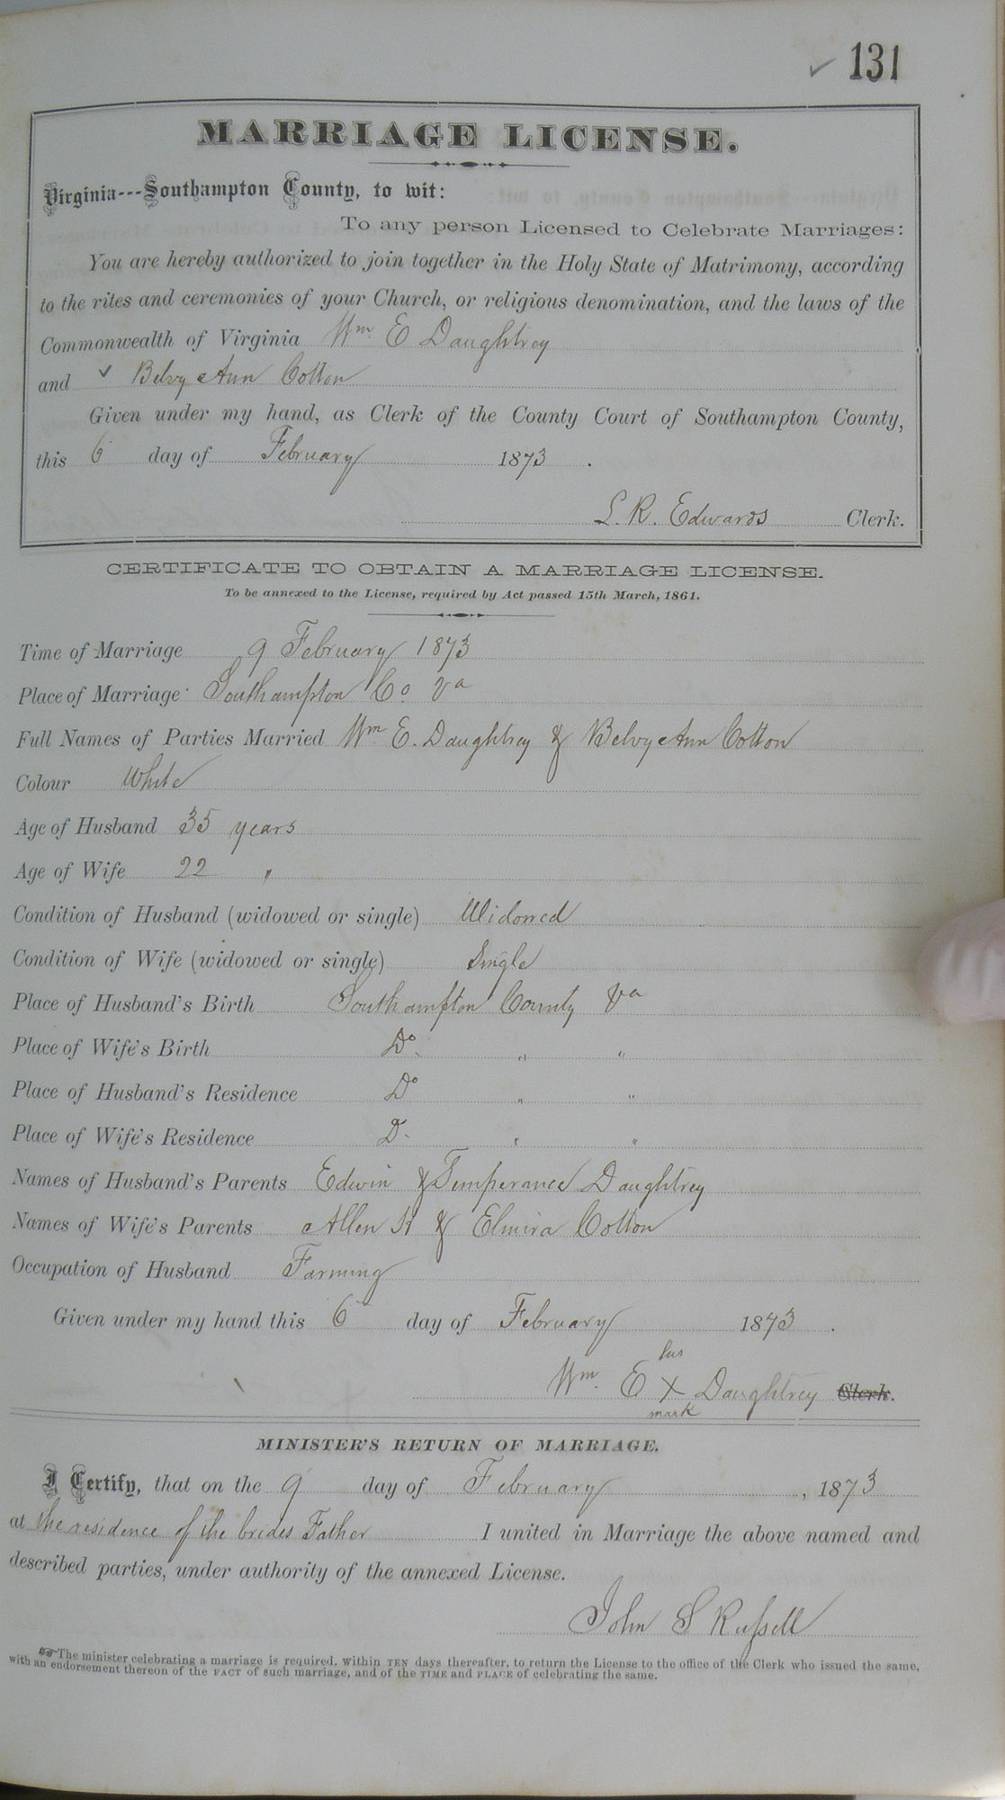 ✓ 131
MARRIAGE LICENSE.
Virginia---Southampton County, to wit:
To any person Licensed to Celebrate Marriages:
You are hereby authorized to join together in the Holy State of Matrimony, according
to the rites and ceremonies of your Church, or religious denomination, and the laws of the
Commonwealth of Virginia Wm. E Daughtrey
and ✓ Belvy Ann Cotton
Given under my hand, as Clerk of the County Court of Southampton County,
this 6 day of February 1873 .
L. R. Edwards Clerk.
CERTIFICATE TO OBTAIN A MARRIAGE LICENSE.
To be annexed to the License, required by Act passed 15th March, 1861.
Time of Marriage 9 February 1873
Place of Marriage Southampton Co. Va
Full Names of Parties Married Wm E. Daughtrey & Belvy Ann Cotton
Colour White
Age of Husband 35 years
Age of Wife 22 "
Condition of Husband (widowed or single) Widowed
Condition of Wife (widowed or single) Single
Place of Husband's Birth Southampton County Va
Place of Wife's Birth Do. " "
Place of Husband's Residence Do " "
Place of Wife's Residence D. " "
Names of Husband's Parents Edwin & Temperance Daughtrey
Names of Wife's Parents Allen & Elmira Cotton
Occupation of Husband Farming
Given under my hand this 6 day of February 1873 .
his
Wm. E X Daughtrey Clerk.
mark
MINISTER'S RETURN OF MARRIAGE.
I Certify, that on the 9 day of February , 1873
at the residence of the brides Father I united in Marriage the above named and
described parties, under authority of the annexed License.
John S Russell
The minister celebrating a marriage is required, within TEN days thereafter, to return the License to the office of the Clerk who issued the same,
with an endorsement thereon of the FACT of such marriage, and of the TIME and PLACE of celebrating the same.